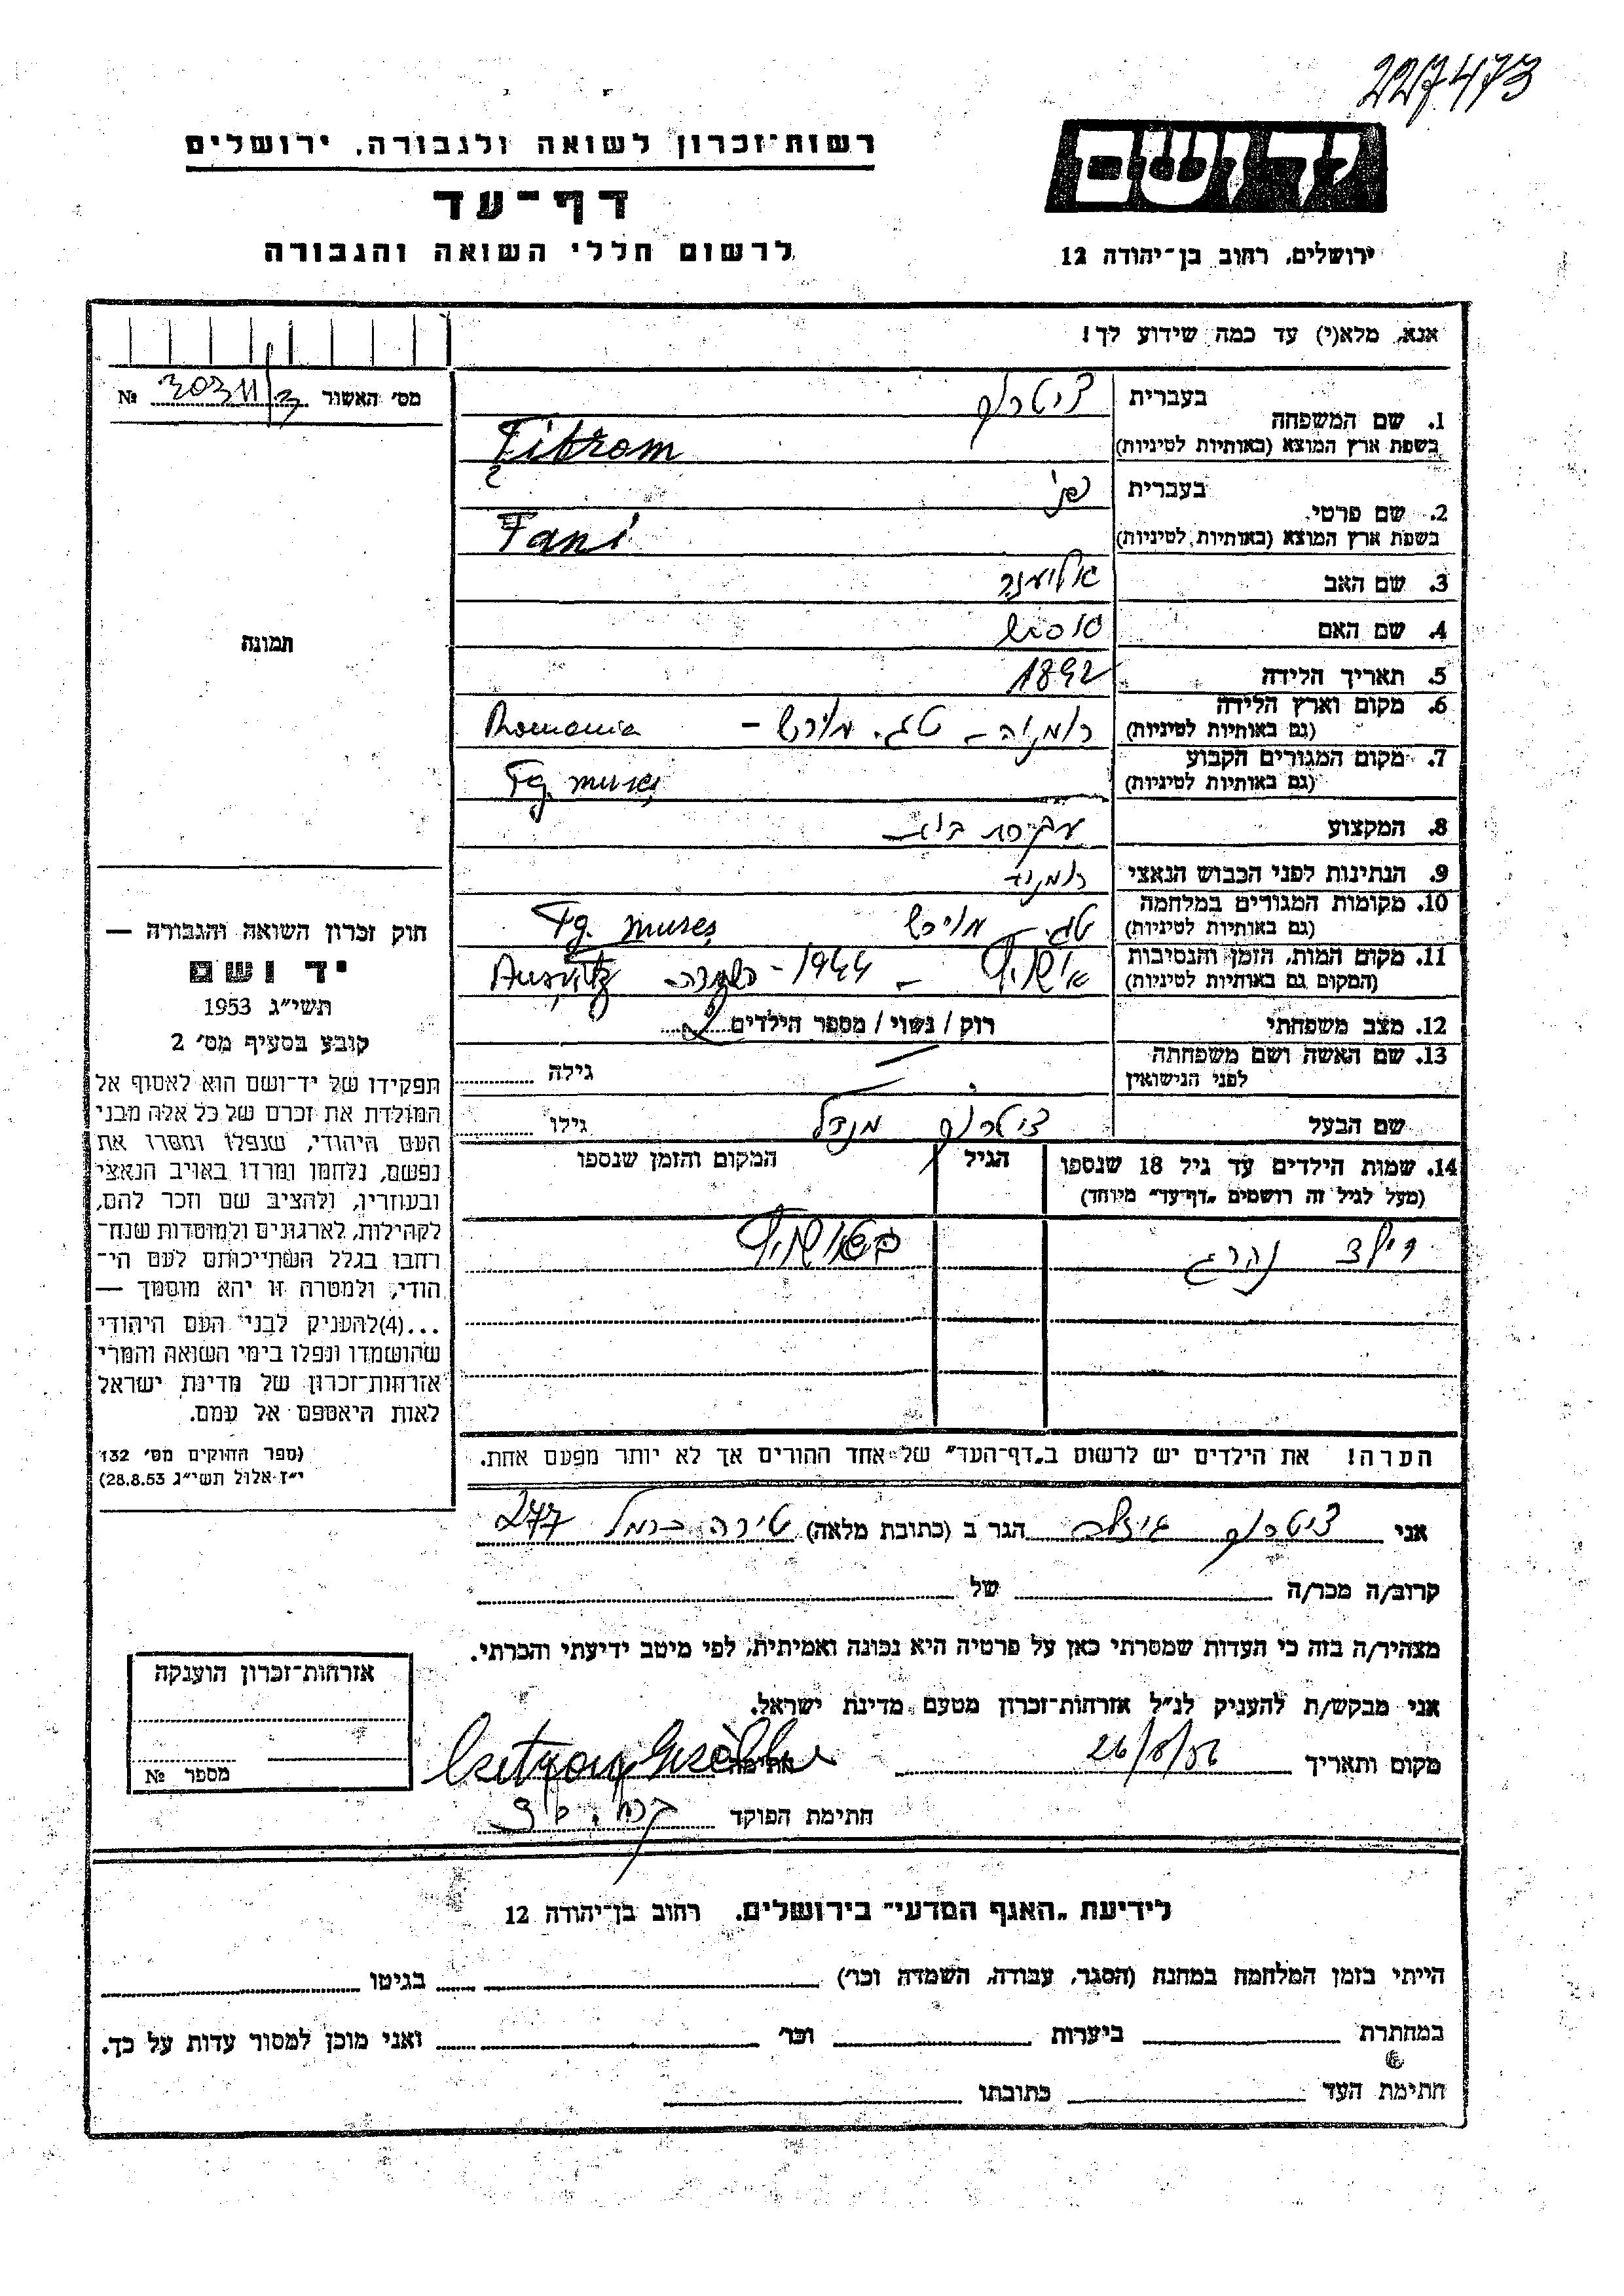 227473
יד ושם
רשות־זכרון לשואה ולגבורה, ירושלים
דף־עד
לרשום חללי השואה והגבורה
ירושלים, רחוב בן־יהודה 12
אנא, מלא(י) עד כמה שידוע לך!
מס׳ האשור № 30311/3
1. שם המשפחה בעברית ציטרום
בשפת ארץ המוצא (באותיות לטיניות) Ţitrom
2. שם פרטי בעברית פני
בשפת ארץ המוצא (באותיות לטיניות) Fani
3. שם האב אליעזר
4. שם האם
5. תאריך הלידה 1892
6. מקום וארץ הלידה (גם באותיות לטיניות) רומניה – טג. מורש – Romania
7. מקום המגורים הקבוע (גם באותיות לטיניות) Tg. mureş
8. המקצוע עקרת בית
9. הנתינות לפני הכבוש הנאצי רומניה
10. מקומות המגורים במלחמה (גם באותיות לטיניות) טג. מורש Tg. mureş
11. מקום המות, הזמן והנסיבות (המקום גם באותיות לטיניות) אושוויץ – 1944 – השמדה
12. מצב משפחתי רוק / נשוי / מספר הילדים 2
13. שם האשה ושם משפחתה לפני הנישואין — גילה
שם הבעל ציטרום מנדל גילו
14. שמות הילדים עד גיל 18 שנספו (מעל לגיל זה רושמים „דף־עד״ מיוחד) הגיל המקום והזמן שנספו
באושוויץ
הערה! את הילדים יש לרשום ב„דף־העד״ של אחד ההורים אך לא יותר מפעם אחת.
תמונה
חוק זכרון השואה והגבורה —
יד ושם
תשי״ג 1953
קובע בסעיף מס׳ 2
תפקידו של יד־ושם הוא לאסוף אל
המולדת את זכרם של כל אלה מבני
העם היהודי, שנפלו ומסרו את
נפשם, נלחמו ומרדו באויב הנאצי
ובעוזריו, ולהציב שם וזכר להם,
לקהילות, לארגונים ולמוסדות שנח־
רחבו בגלל השתייכותם לעם הי־
הודי, ולמטרה זו יהא מוסמך —
...(4)להעניק לבני העם היהודי
שהושמדו ונפלו בימי השואה והמרי
אזרחות־זכרון של מדינת ישראל
לאות היאספם אל עמם.
(ספר החוקים מס׳ 132
י״ז אלול תשי״ג 28.8.53)
אני ציטרום גיזלה הגר ב (כתובת מלאה) טירה כרמל 277
קרוב/ה מכר/ה של
מצהיר/ה בזה כי העדות שמסרתי כאן על פרטיה היא נכונה ואמיתית, לפי מיטב ידיעתי והכרתי.
אני מבקש/ת להעניק לנ״ל אזרחות־זכרון מטעם מדינת ישראל.
מקום ותאריך 26/8/56 חתימה
חתימת הפוקד
אזרחות־זכרון הוענקה
מספר №
לידיעת „האגף המדעי״ בירושלים, רחוב בן־יהודה 12
הייתי בזמן המלחמה במחנה (הסגר, עבודה, השמדה וכו׳) בגיטו
במחתרת ביערות וכו׳ ואני מוכן למסור עדות על כך.
חתימת העד כתובתו